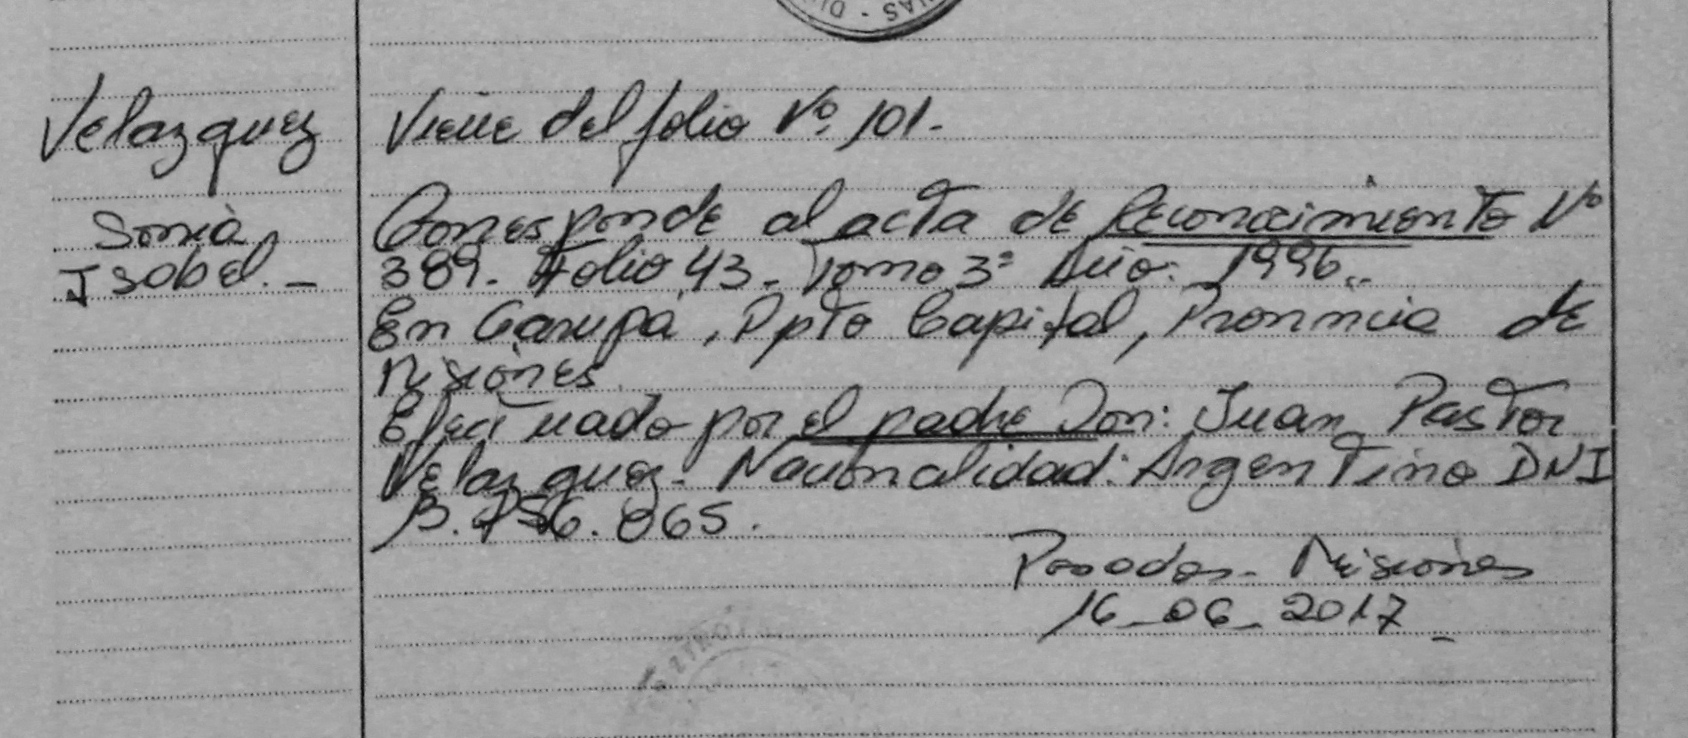 Velazquez
Sonia
Isabel.-
Viene del folio Nº 101.-
Corresponde al acta de Reconocimiento Nº
389. Folio 43. Tomo 3º Año: 1996..
En Garupá, Dpto Capital, Provincia de
Misiones.
Efectuado por el padre Don: Juan Pastor
Velazquez. Nacionalidad: Argentino DNI
13.756.065.
Posadas - Misiones
16-06-2017-